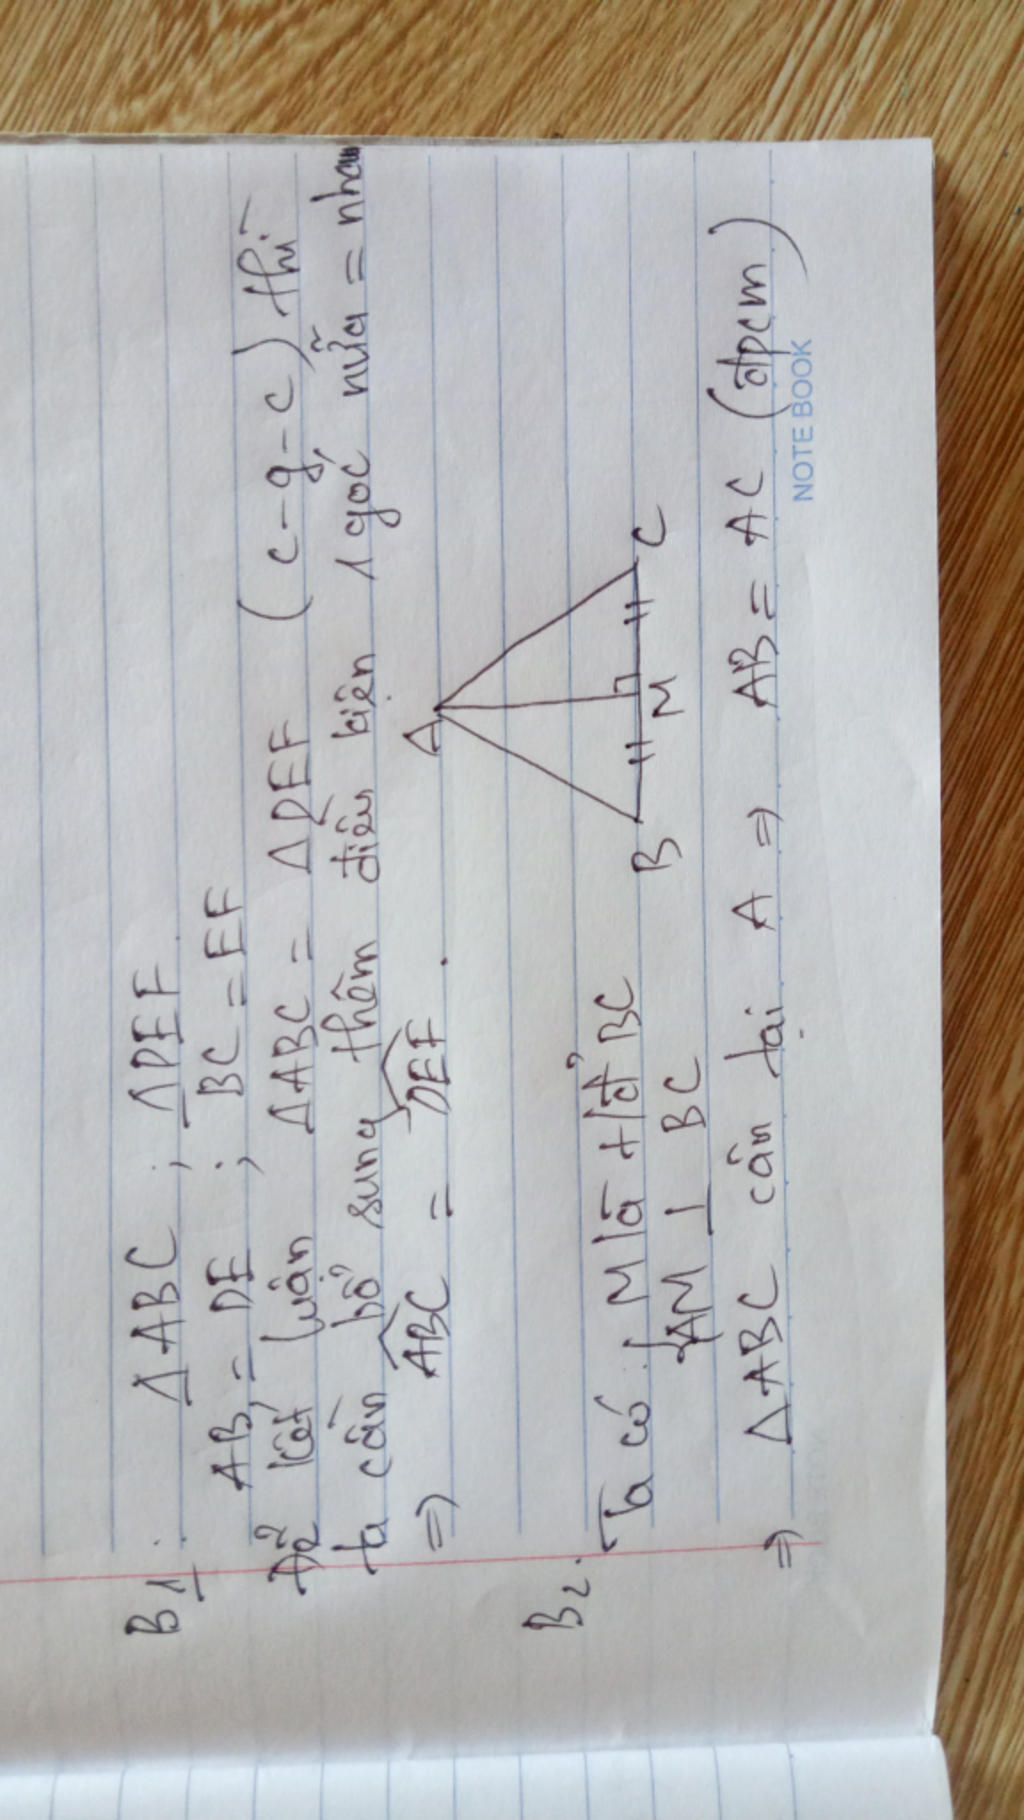 B1. ΔABC ; ΔDEF
AB = DE ; BC = EF
Để kết luận ΔABC = ΔDEF (c-g-c) thì
ta cần bổ sung thêm điều kiện 1 góc nữa = nhau
=> ABC = DEF .
A
B M C
B2. Ta có { M là t/đ BC
AM ⊥ BC
=> ΔABC cân tại A => AB = AC (đpcm)
NOTE BOOK